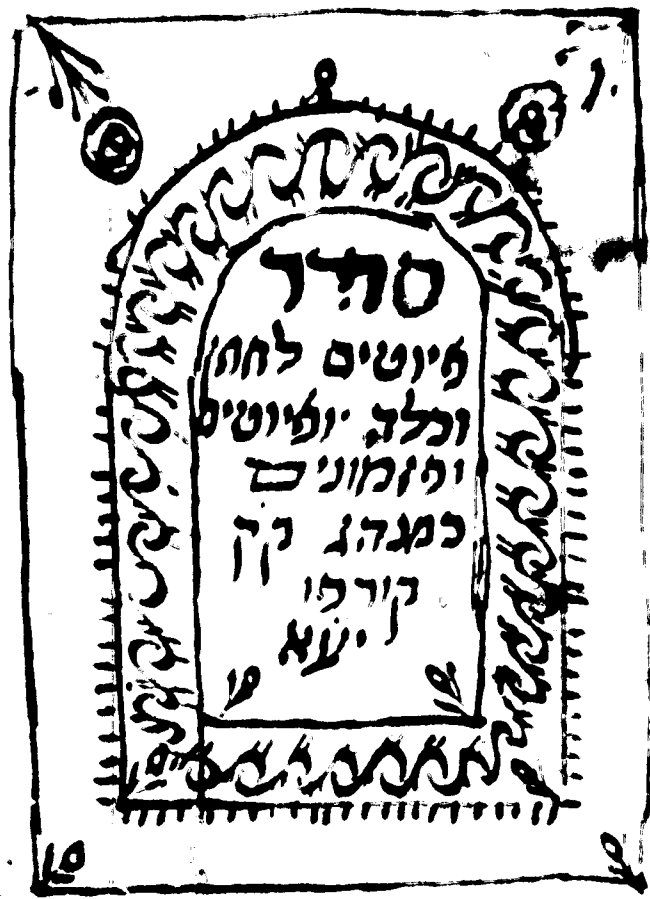 סדר
פיוטים לחתן
וכלה ופיוטים
ופזמונים
כמנהג קק
קורפו
יעא